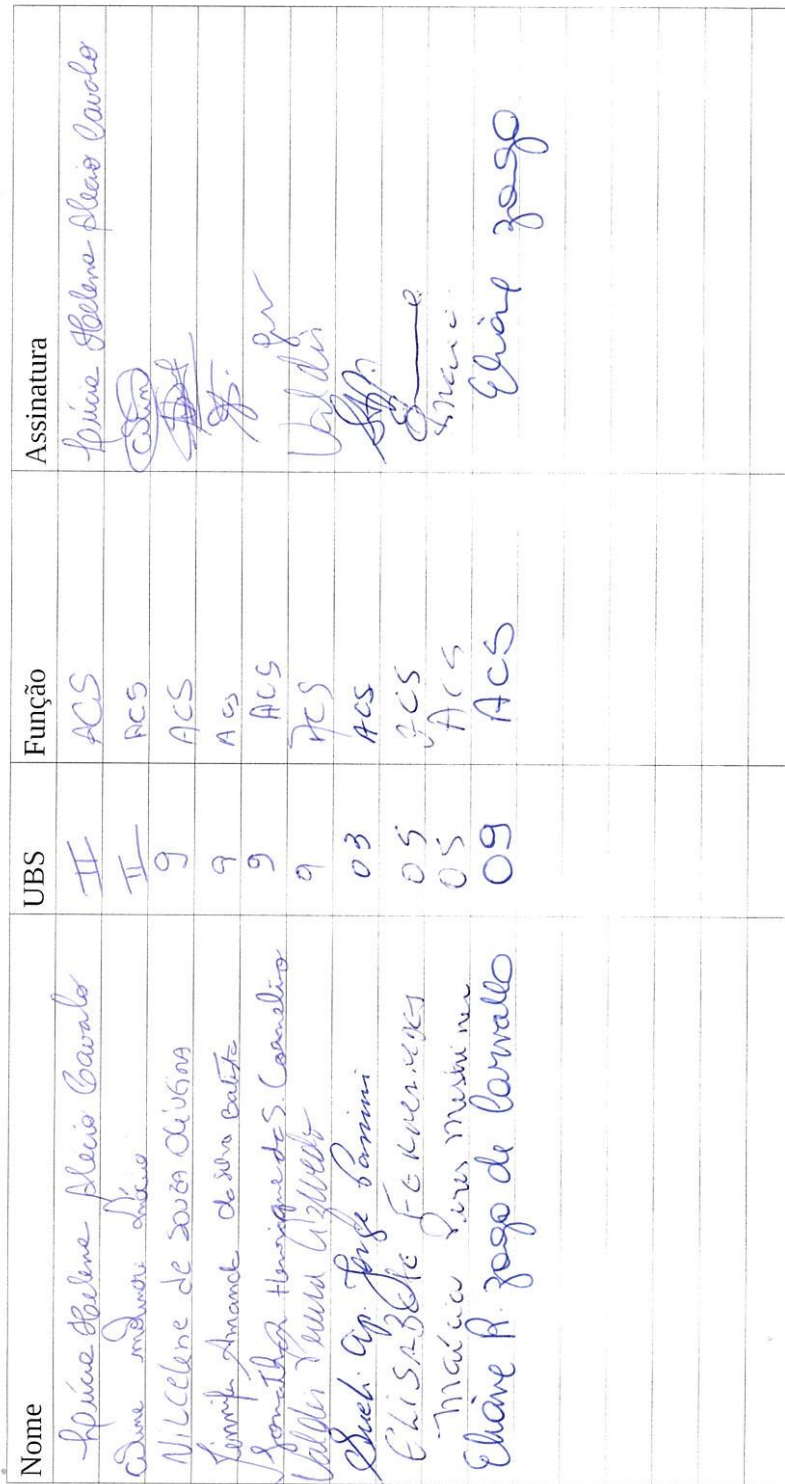 Nome UBS Função Assinatura
Lúcia Helena Alecio Cavalo II ACS Lúcia Helena Alecio Cavalo
II ACS
Nilcelene de Souza Oliveira 9 ACS
Jennifer Amanda da Silva Batista 9 ACS
Jonathan Henrique da S. Cornelio 9 ACS
Valdir Azevedo 9 ACS Valdir
Sueli Ap. Jorge 03 ACS
ELISABETE FERNANDES 05 ACS
Márcia Pires 05 ACS
Eliane R. Zago de Carvalho 09 ACS Eliane Zago